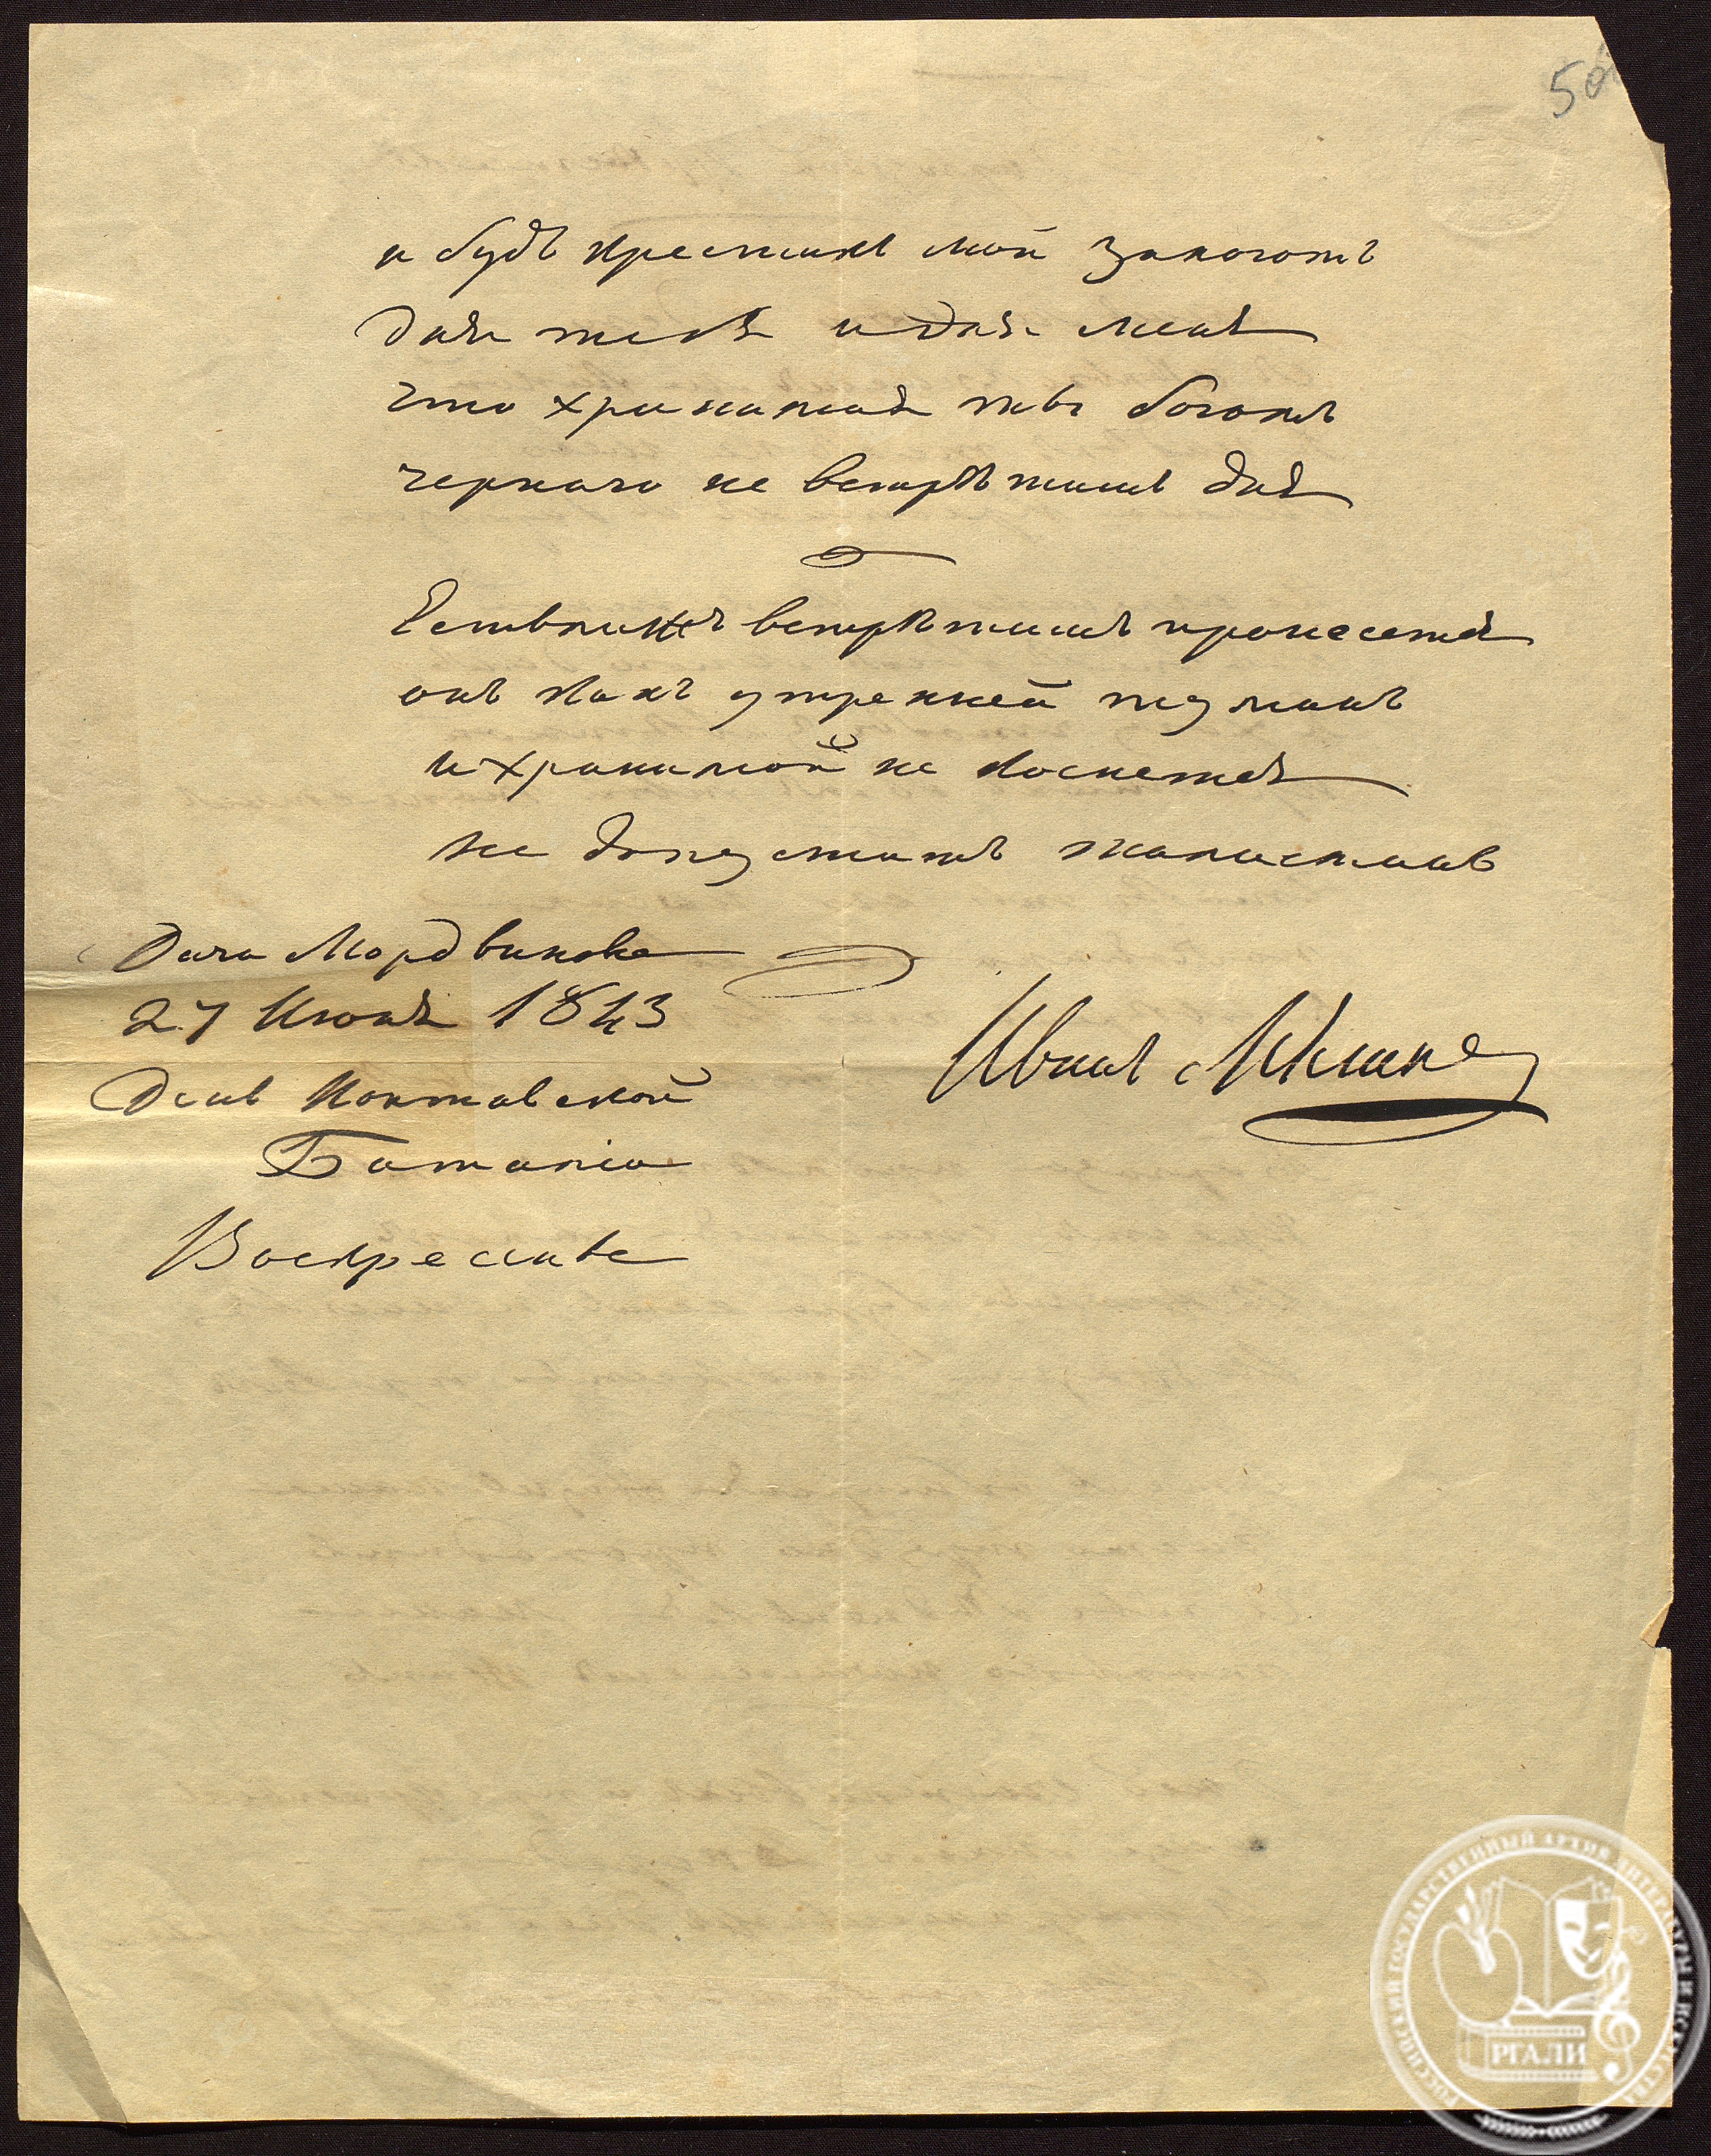 50
и будь крестикъ мой залогомъ
для тебя и для меня
что хранимая ты богомъ
чернаго не встрѣтишь дня
Естьлижъ встрѣтишь пронесется
онъ какъ утренней туманъ
и хранимой не коснется
не допуститъ талисманъ
Дача Мордвинова
27 Июня 1843
День Полтавской
Баталіи
Воскресенье
Иванъ Мятлевъ
РОССИЙСКИЙ ГОСУДАРСТВЕННЫЙ АРХИВ ЛИТЕРАТУРЫ И ИСКУССТВА
РГАЛИ